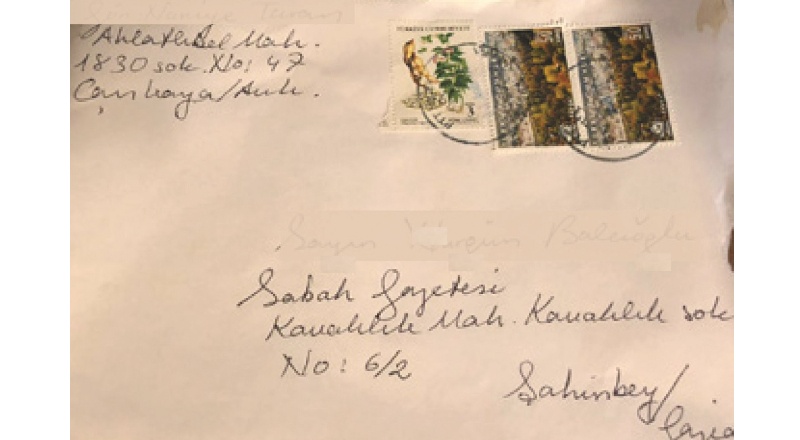 Ahlatlıbel Mah.
1830 sok. No: 47
Çankaya/Ank.
TÜRKİYE CUMHURİYETİ
Sayın Balcıoğlu
Sabah Gazetesi
Kavaklık Mah. Kavaklık sok
No: 6/2
Şahinbey/